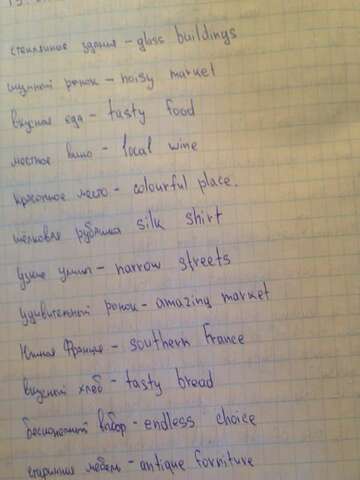 стеклянное здания - glass buildings
шумный рынок - noisy market
вкусная еда - tasty food
местное вино - local wine
красочное место - colourful place.
шёлковая рубашка silk shirt
узкие улицы - narrow streets
удивительный рынок - amazing market
Южная Франция - southern France
вкусный хлеб - tasty bread
бесконечный выбор - endless choice
старинная мебель - antique forniture